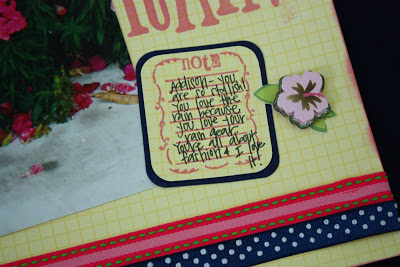 note
Addison- you
are so stylish!
you love the
rain because
you love your
rain gear.
You're all about
fashion & I love
it!